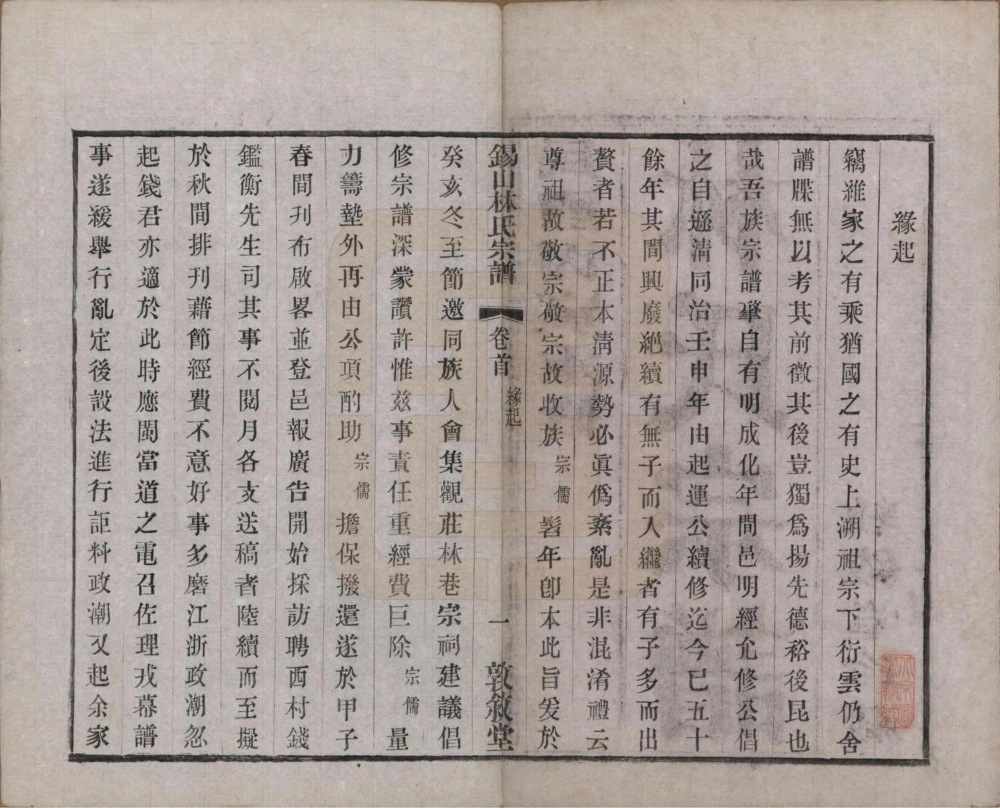 緣起
竊維家之有乘猶國之有史上溯祖宗下衍雲仍舍
譜牒無以考其前徵其後豈獨爲揚先德裕後昆也
哉吾族宗譜肇自有明成化年間邑明經允修公倡
之自遜清同治壬申年由起運公續修迄今已五十
餘年其間興廢絕續有無子而入繼者有子多而出
贅者若不正本清源勢必眞僞紊亂是非混淆禮云
尊祖故敬宗敬宗故收族宗儒髫年卽本此旨爰於
錫山林氏宗譜 卷首 緣起 一 敦敘堂
癸亥冬至節邀同族人會集觀莊林巷宗祠建議倡
修宗譜深蒙讚許惟茲事責任重經費巨除宗儒量
力籌墊外再由公項酌助宗儒擔保撥還遂於甲子
春間刊布啟畧並登邑報廣告開始採訪聘西村錢
鑑衡先生司其事不閱月各支送稿者陸續而至擬
於秋間排刊藉節經費不意好事多磨江浙政潮忽
起錢君亦適於此時應閩當道之電召佐理戎幕譜
事遂緩舉行亂定後設法進行詎料政潮又起余家